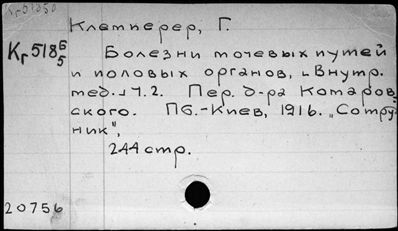 Кг51850
Клемперер, Г.
Кг518 Б/5
Болезни мочевых путей
и половых органов, "Внутр.
мед." ч.2. Пер. д-ра Комаров
ского. Пб.-Киев, 1916. "Сотру
ник",
244 стр.
20756